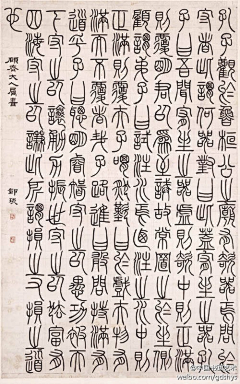 孔子觀於魯桓公之廟有欹器焉孔子問於
守者曰此謂何器對曰此蓋宥坐之器
孔子曰吾聞宥坐之器虛則欹中則正滿
則覆明君以為至誡故常置之於坐側
顧謂弟子曰試注水焉乃注之水中則
正滿則覆夫子喟然歎曰於戲夫物惡有
滿而不覆者哉子路進曰敢問持滿有
道乎子曰聰明睿智守之以愚功被天
下守之以讓勇力振世守之以怯富有
四海守之以謙此所謂損之又損之道
也
大人屬書
鄧琰